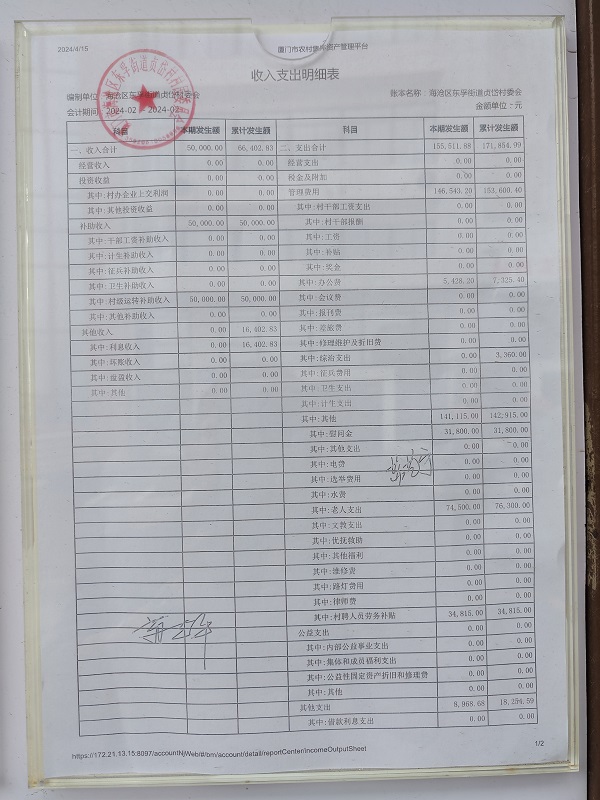 2024/4/15 厦门市农村集体资产管理平台
收入支出明细表
编制单位：海沧区东孚街道贞岱村委会 账本名称：海沧区东孚街道贞岱村委会
会计期间：2024-02 - 2024-02 金额单位：元
科目 本期发生额 累计发生额 科目 本期发生额 累计发生额
一、收入合计 50,000.00 66,402.83 二、支出合计 155,511.88 171,854.99
经营收入 0.00 0.00 经营支出 0.00 0.00
投资收益 0.00 0.00 税金及附加 0.00 0.00
其中:村办企业上交利润 0.00 0.00 管理费用 146,543.20 153,600.40
其中:其他投资收益 0.00 0.00 其中:村干部工资支出 0.00 0.00
补助收入 50,000.00 50,000.00 其中:村干部报酬 0.00 0.00
其中:干部工资补助收入 0.00 0.00 其中:工资 0.00 0.00
其中:计生补助收入 0.00 0.00 其中:补贴 0.00 0.00
其中:征兵补助收入 0.00 0.00 其中:奖金 0.00 0.00
其中:卫生补助收入 0.00 0.00 其中:办公费 5,428.20 7,325.40
其中:村级运转补助收入 50,000.00 50,000.00 其中:会议费 0.00 0.00
其中:其他补助收入 0.00 0.00 其中:报刊费 0.00 0.00
其他收入 0.00 16,402.83 其中:差旅费 0.00 0.00
其中:利息收入 0.00 16,402.83 其中:修理维护及折旧费 0.00 0.00
其中:坏账收入 0.00 0.00 其中:综治支出 0.00 3,360.00
其中:盘盈收入 0.00 0.00 其中:征兵费用 0.00 0.00
其中:其他 0.00 0.00 其中:卫生支出 0.00 0.00
其中:计生支出 0.00 0.00
其中:其他 141,115.00 142,915.00
其中:慰问金 31,800.00 31,800.00
其中:其他支出 0.00 0.00
其中:电费 0.00 0.00
其中:选举费用 0.00 0.00
其中:水费 0.00 0.00
其中:老人支出 74,500.00 76,300.00
其中:文教支出 0.00 0.00
其中:优抚救助 0.00 0.00
其中:其他福利 0.00 0.00
其中:维修费 0.00 0.00
其中:路灯费用 0.00 0.00
其中:律师费 0.00 0.00
其中:村聘人员劳务补贴 34,815.00 34,815.00
公益支出 0.00 0.00
其中:内部公益事业支出 0.00 0.00
其中:集体和成员福利支出 0.00 0.00
其中:公益性固定资产折旧和修理费 0.00 0.00
其中:其他 0.00 0.00
其他支出 8,968.68 18,254.59
其中:借款利息支出 0.00 0.00
https://172.21.13.15:8097/accountNjWeb/#/bm/account/datail/reportCenter/incomeOutputSheet 1/2